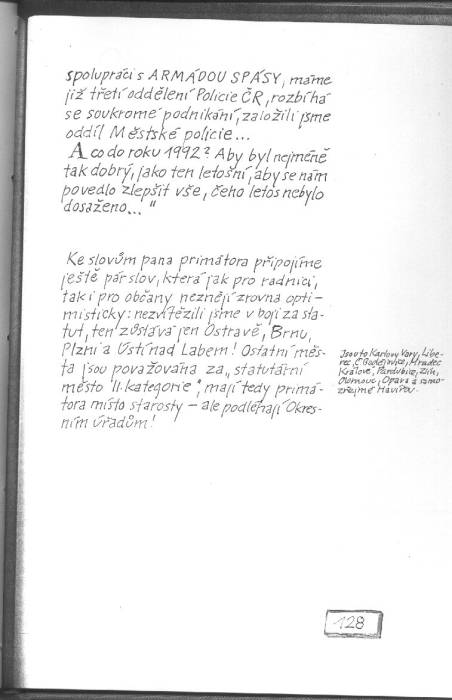 spolupráci s ARMÁDOU SPÁSY, máme
již třetí oddělení Policie ČR, rozbíhá
se soukromé podnikání, založili jsme
oddíl Městské policie...
A co do roku 1992? Aby byl nejméně
tak dobrý, jako ten letošní, aby se nám
povedlo zlepšit vše, čeho letos nebylo
dosaženo..."
Ke slovům pana primátora připojíme
ještě pár slov, která jak pro radnici,
tak i pro občany neznějí zrovna opti-
misticky: nezvítězili jsme v boji za sta-
tut, ten zůstává jen Ostravě, Brnu,
Plzni a Ústí nad Labem! Ostatní měs-
ta jsou považována za „statutární
město II. kategorie", mají tedy primá-
tora místo starosty – ale podléhají Okres-
ním úřadům!
Jsou to Karlovy Vary, Libe-
rec, Č. Budějovice, Hradec
Králové, Pardubice, Zlín,
Olomouc, Opava a samo-
zřejmě Havířov.
128